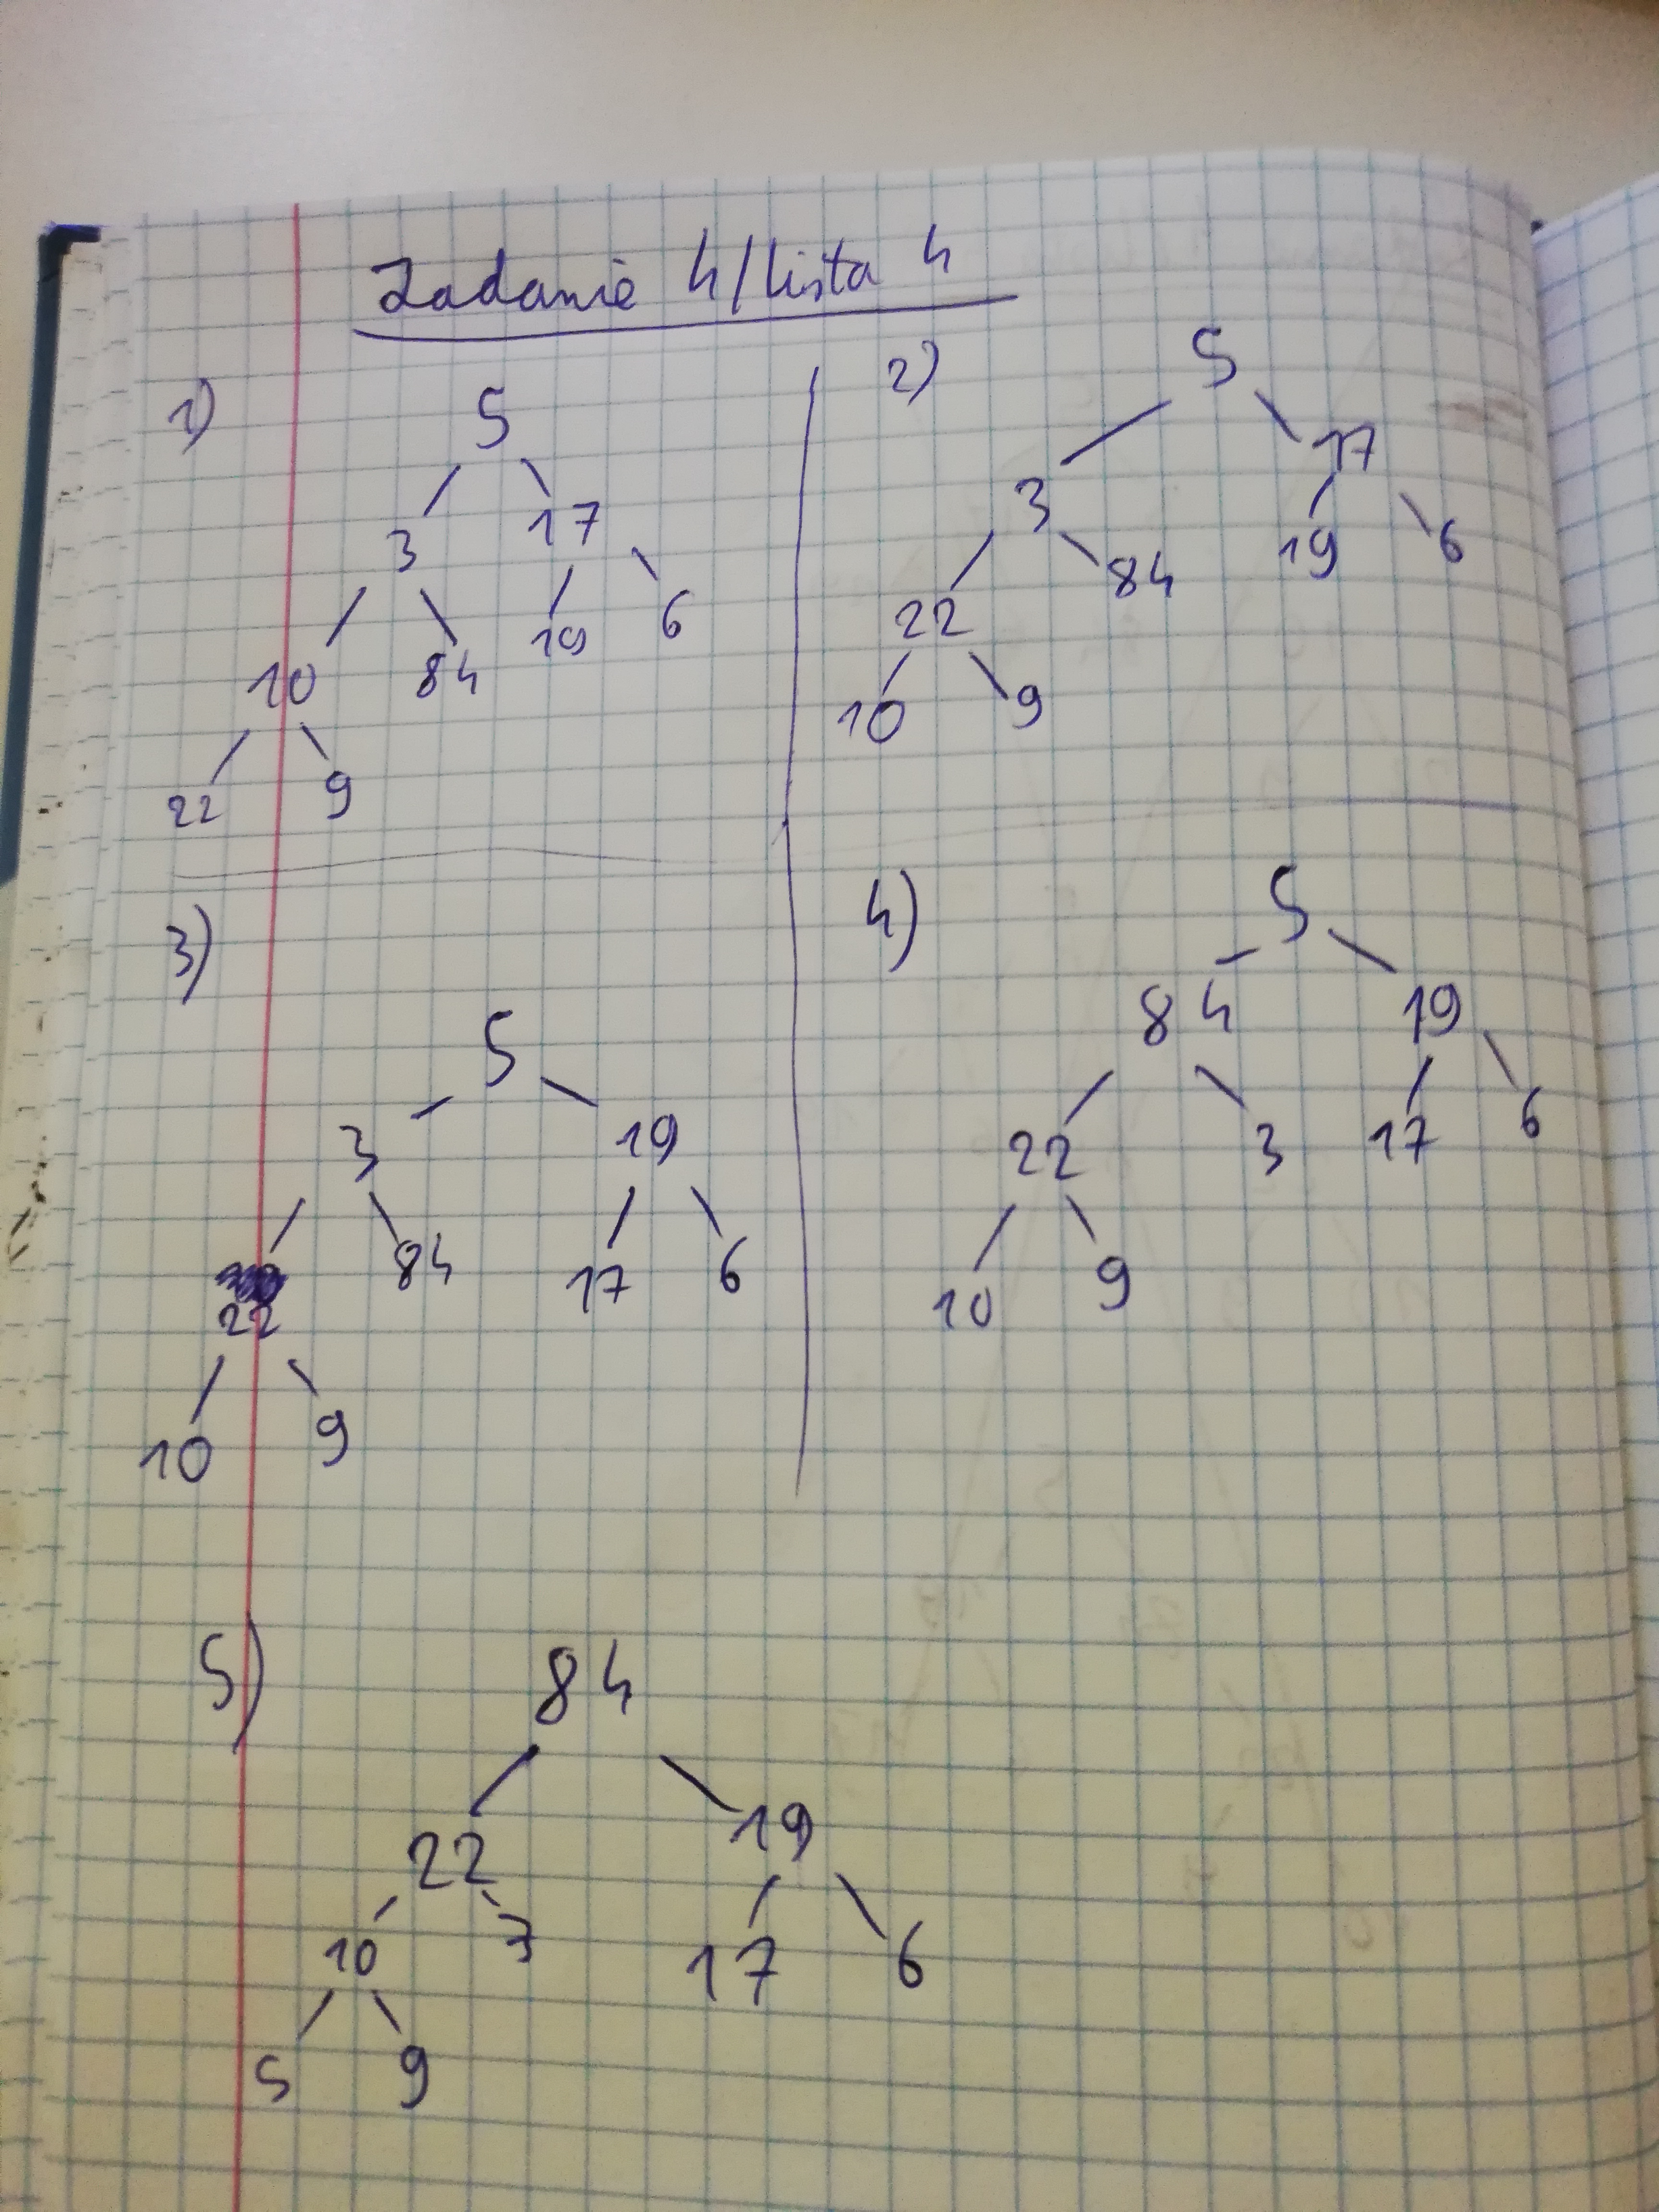 Zadanie 4/Lista 4
1)
5
3 17
10 84 19 6
22 9
2)
5
3 17
22 84 19 6
10 9
3)
5
3 19
22 84 17 6
10 9
4)
5
84 19
22 3 17 6
10 9
5)
84
22 19
10 3 17 6
5 9